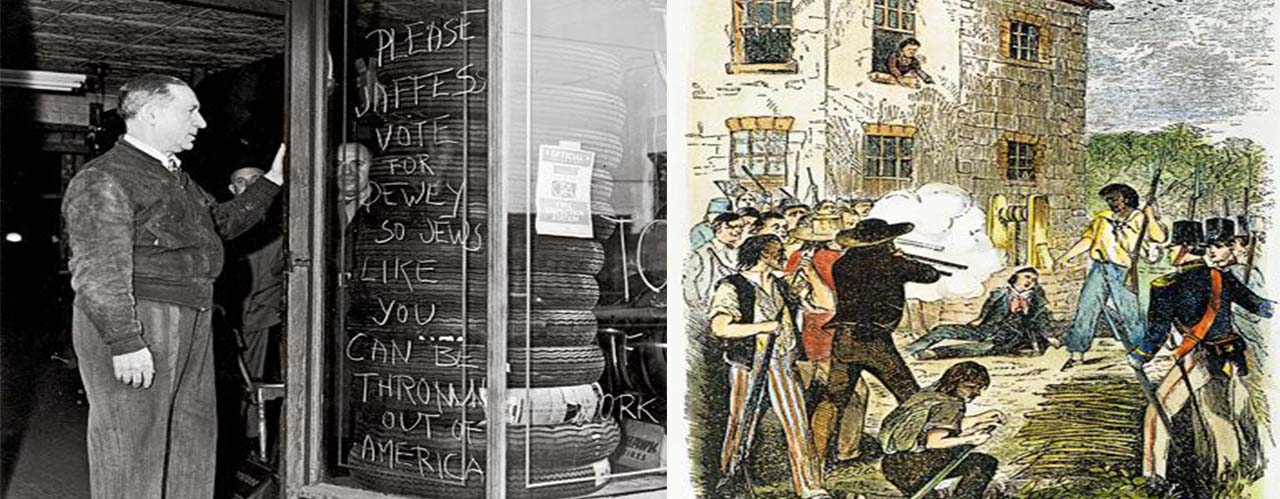 PLEASE
JAFFESS
VOTE
FOR
DEWEY
SO JEWS
LIKE
YOU
CAN BE
THROWN
OUT OF
AMERICA
OFFICIAL
ORK